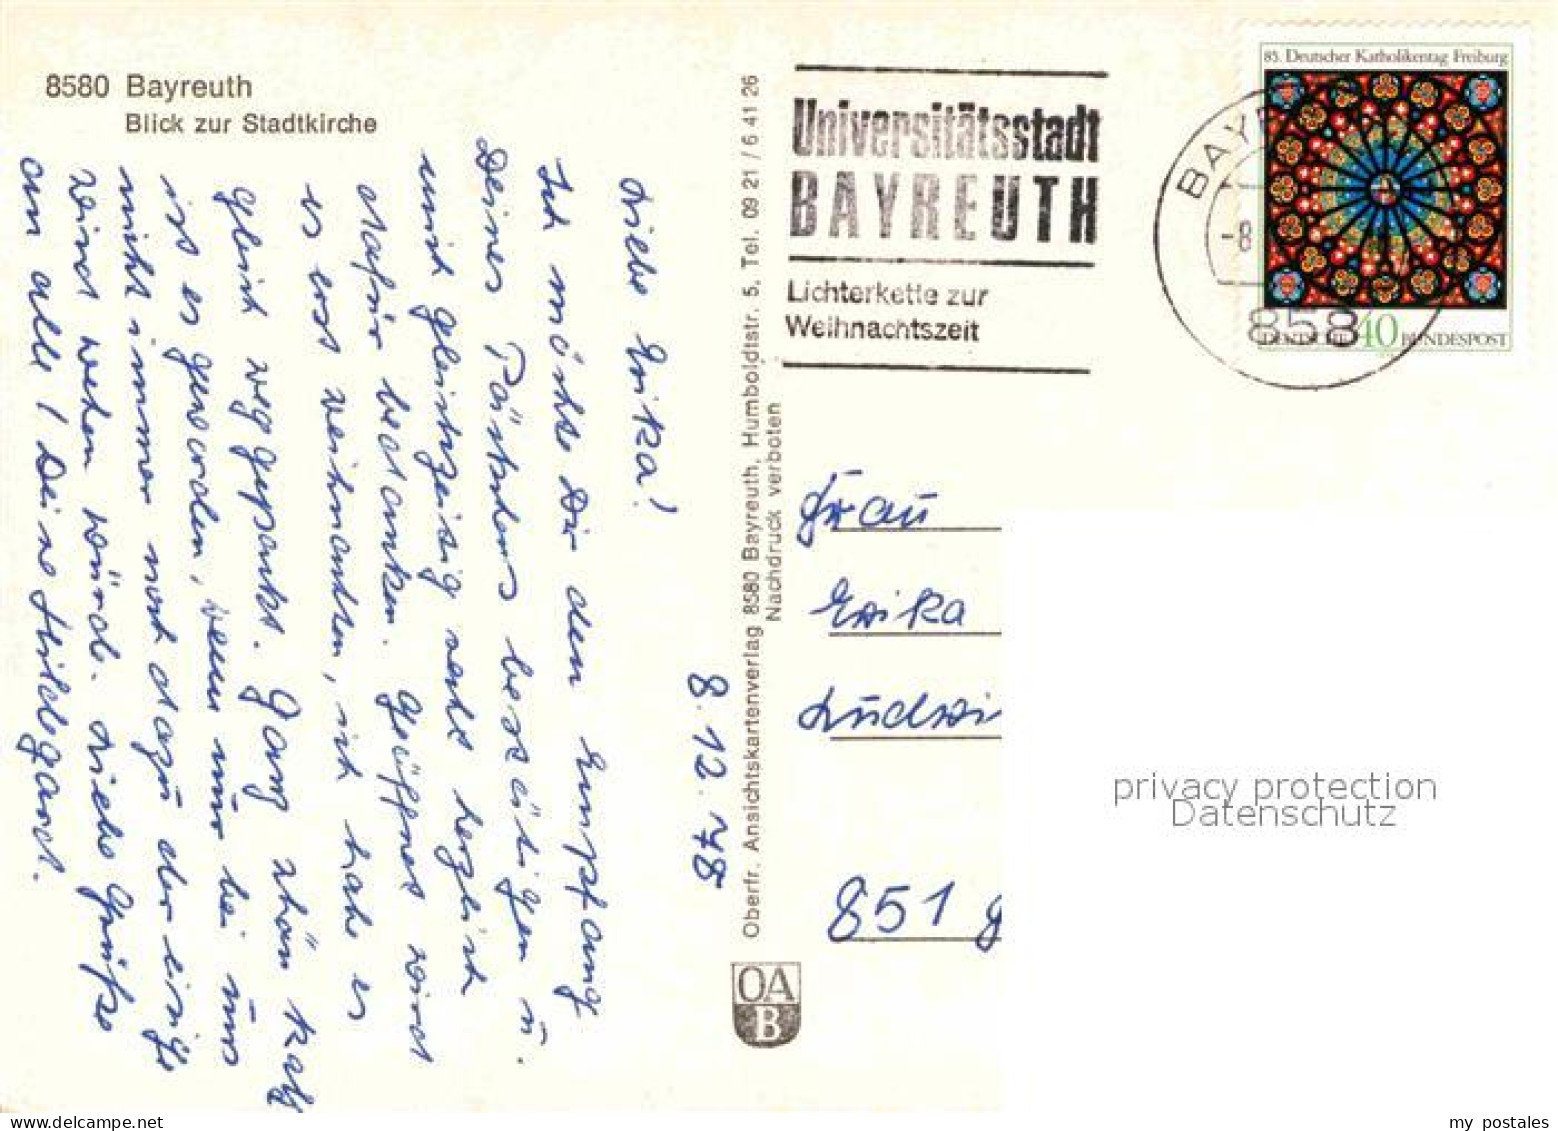 8580 Bayreuth
Blick zur Stadtkirche
Liebe Erika!
Ich möchte Dir den Empfang
Deines Päckchens bestätigen u.
mich gleichzeitig recht herzlich
dafür bedanken. Geöffnet wird
es erst Weihnachten, ich habe es
gleich weggepackt. Ganz schön kalt
ist es geworden, wenn nur bei uns
nicht immer noch dazu der eisige
Wind wehen würde. Liebe Grüße
an alle! Deine Hildegard.
8.12.78
Oberfr. Ansichtskartenverlag 8580 Bayreuth, Humboldtstr. 5, Tel. 09 21 / 6 41 26
Nachdruck verboten
OA
B
Universitätsstadt
BAYREUTH
Lichterkette zur
Weihnachtszeit
BAY
-8
858
85. Deutscher Katholikentag Freiburg
DEUTSCHE 40 BUNDESPOST
Frau
Erika
Ludwi
851 G
privacy protection
Datenschutz
delcampe.net
my_postales